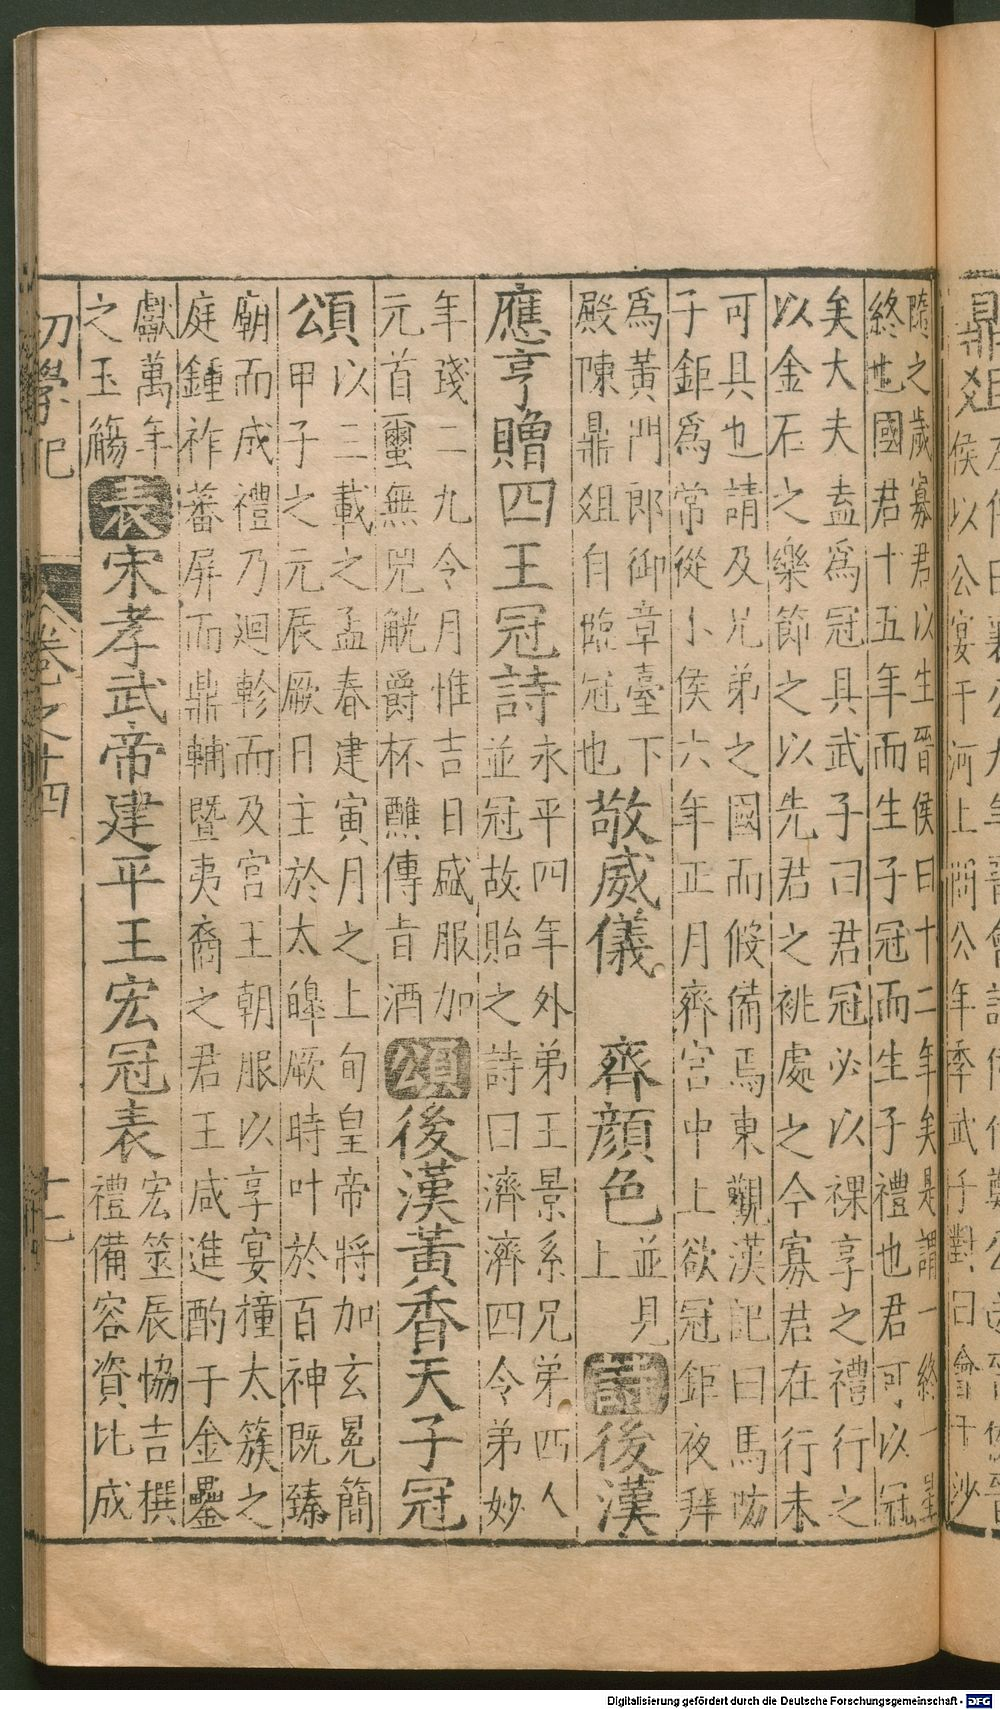 鼎俎
侯以公宴于河上問公年季武子對曰會于沙
隨之歲寡君以生晉侯曰十二年矣是謂一終一星
終也國君十五年而生子冠而生子禮也君可以冠
矣大夫盍爲冠具武子曰君冠必以祼享之禮行之
以金石之樂節之以先君之祧處之今寡君在行未
可具也請及兄弟之國而假備焉東觀漢記曰馬防
子鉅爲常從小侯六年正月齊宮中上欲冠鉅夜拜
爲黃門郎御章臺下
殿陳鼎俎自臨冠也
敬威儀 齊顏色
並見
上
詩後漢
應亨贈四王冠詩
永平四年外弟王景系兄弟四人
並冠故貽之詩曰濟濟四令弟妙
年踐二九令月惟吉日盛服加
元首蠒無兕觥爵杯醮傳旨酒
頌後漢黃香天子冠
頌
以三載之孟春建寅月之上旬皇帝將加玄冕簡
甲子之元辰厥日主於太皡厥時叶於百神既臻
廟而成禮乃迴軫而及宮王朝服以享宴撞太簇之
庭鍾祚蕃屏而鼎輔暨夷裔之君王咸進酌于金罍
獻萬年
之玉觴
表宋孝武帝建平王宏冠表
宏筮辰協吉撰
禮備容資比成
初學記 卷之十四 十七
Digitalisierung gefördert durch die Deutsche Forschungsgemeinschaft - DFG